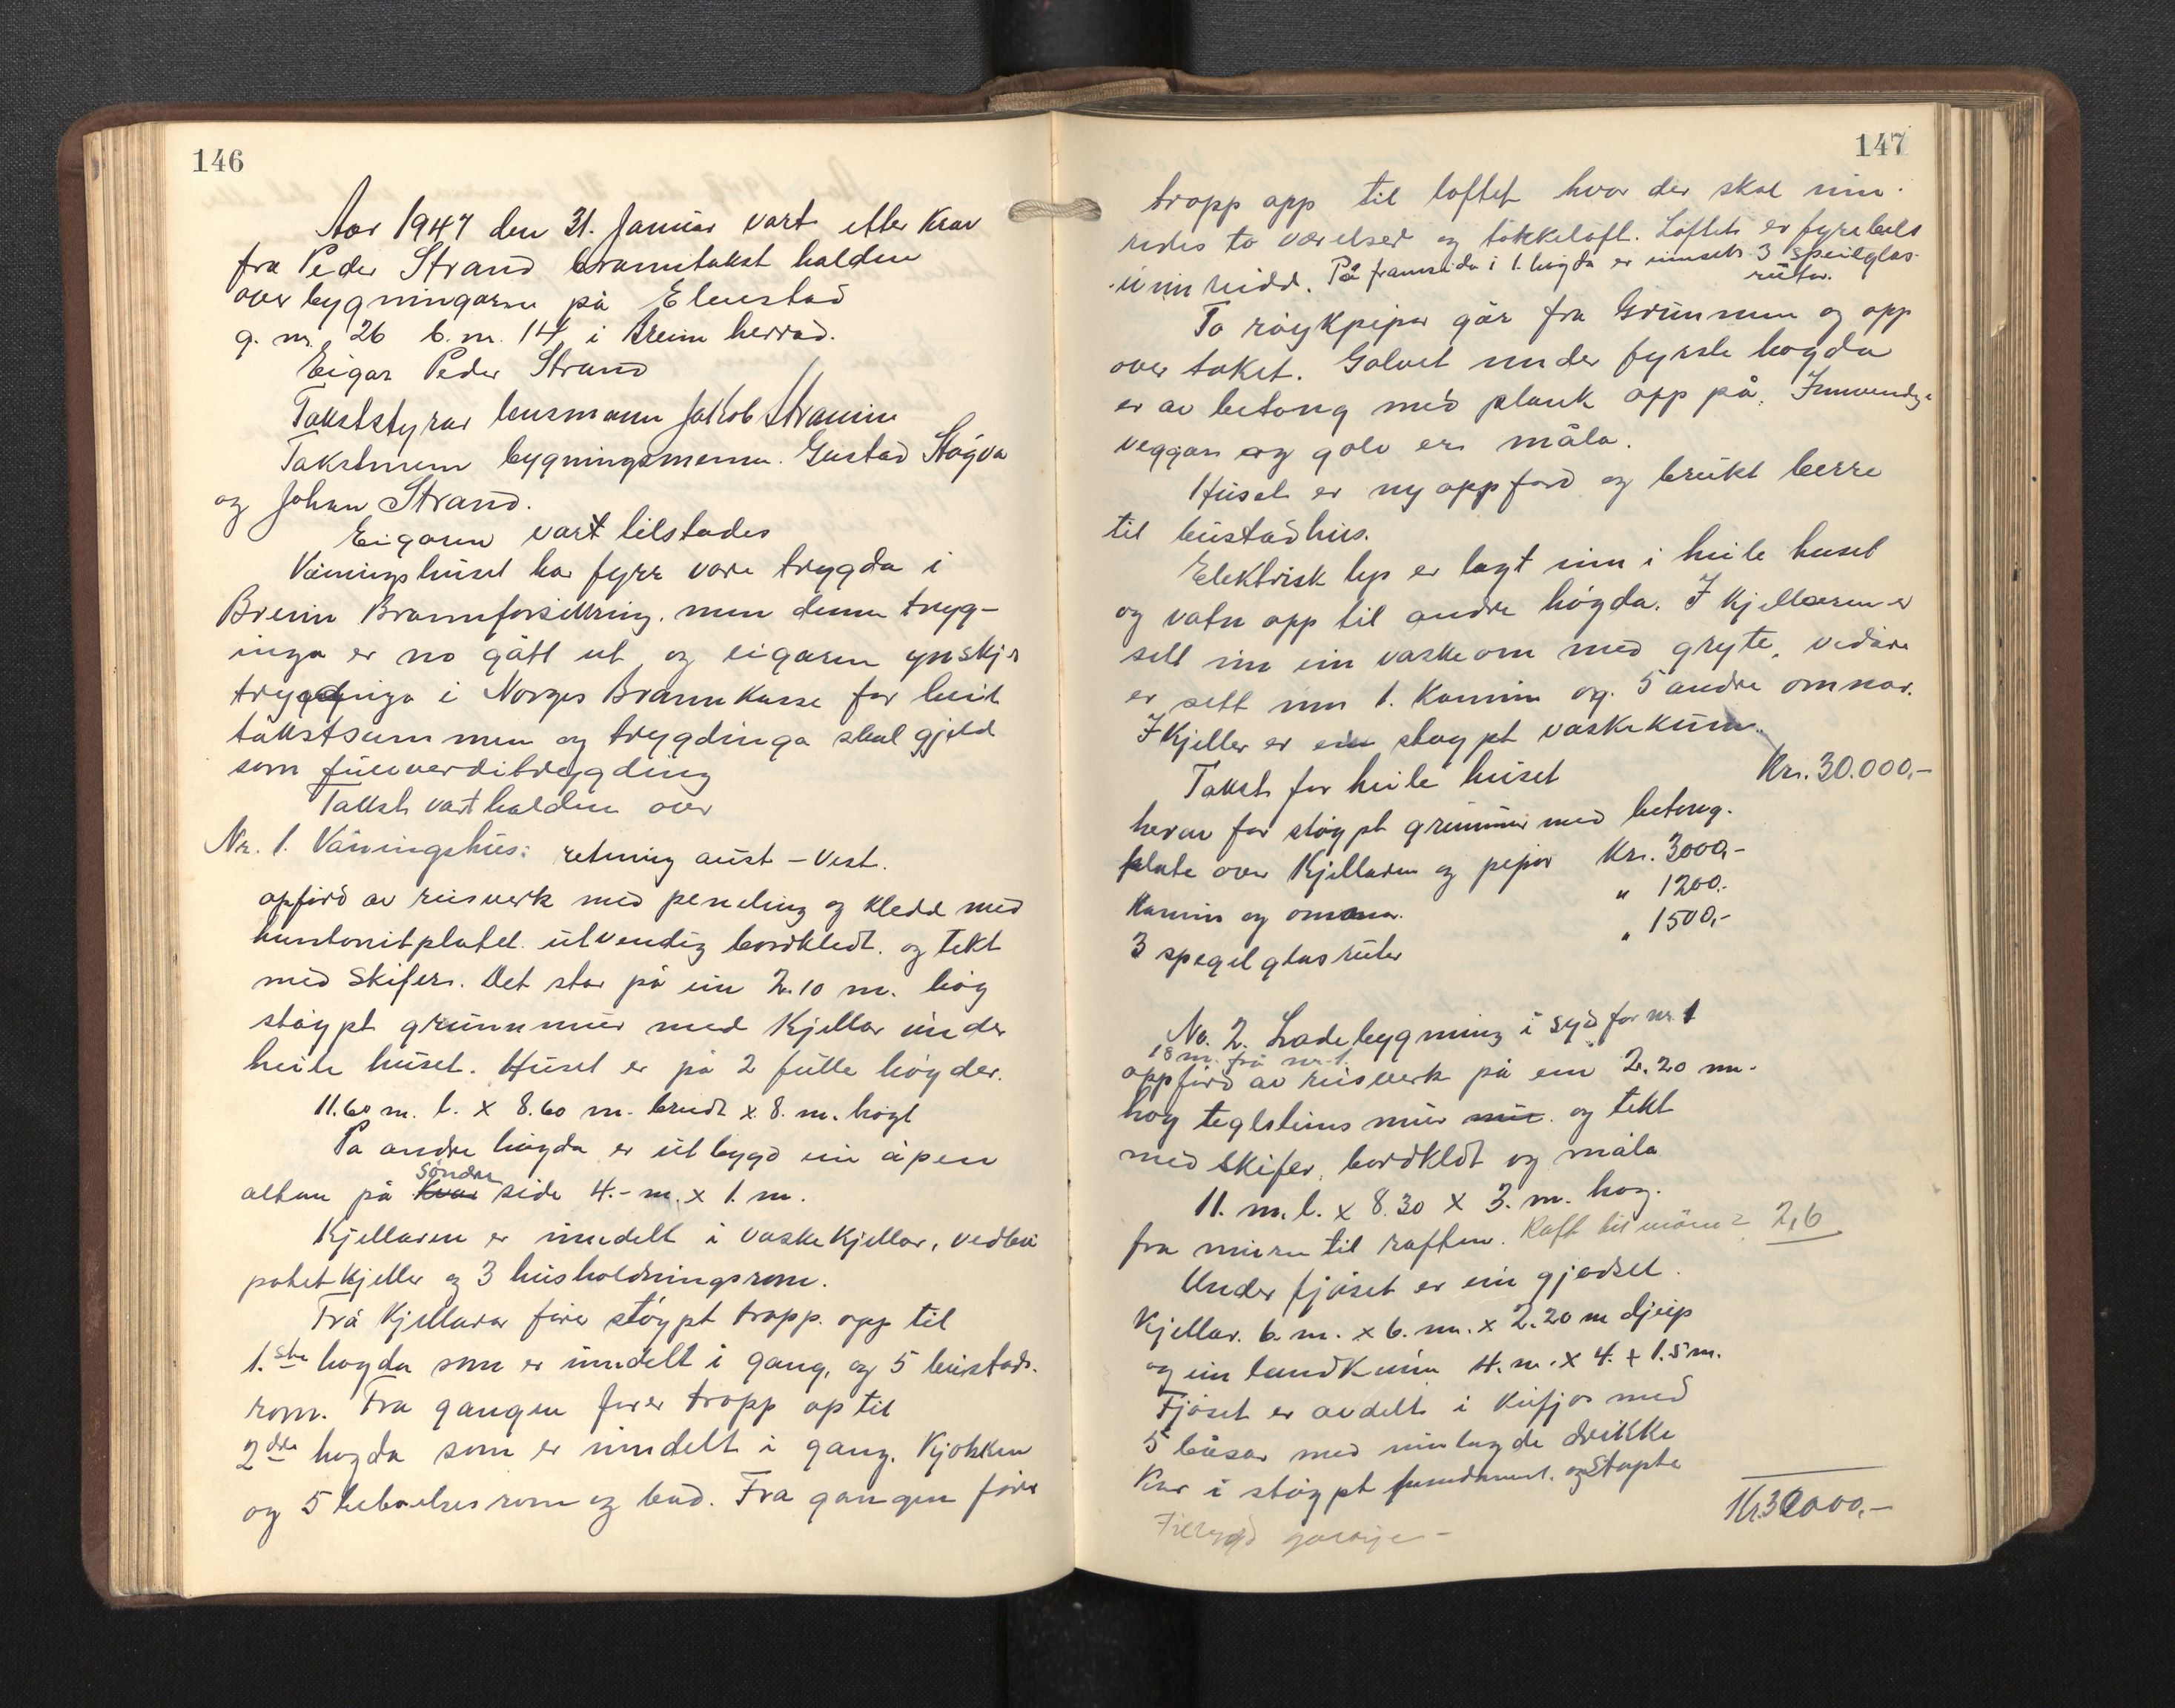 146
Aar 1947 den 31. Januar vart etter Krav
fra Peder Strand branntakst halden
over bygningarne på Elvestad
g. nr. 26 b. nr. 14 i Breim herrad.
Eigar Peder Strand
Takststyrar lensmann Jakob Straume
Takstmenn bygningsmenn. Gustav Støyva
og Johan Strand.
Eigaren vart tilstades
Våningshuset har fyrr vore trygda i
Breim Brannforsikring. men denne tryg-
inga er no gått ut og eigaren ynskjer
trygdinga i Norges Brannkasse for heile
takstsummen og trygdinga skal gjeld
som fullverditrygding
Takst vart halden over
Nr. 1. Våningshus: retning aust – Vest.
opførd av reisverk med peneling og kledd med
huntonitplater. utvendig bordkledt. og tekt
med Skifer. Det star på ein 2.10 m. høg
støypt grunnmur med Kjellar under
heile huset. Huset er på 2 fulle høgder.
11.60 m. l. x 8.60 m. breidt x 8. m. høgt
På andre høgda er utbygd ein åpen
altan på Søndre side 4.- m. x 1. m.
Kjellaren er inndelt i vaskekjellar, vedbu
potetkjeller og 3 husholdningsrom.
Frå Kjellarar fører støypt tropp. opp til
1.ste høgda som er inndelt i gang, og 5 bustads.
rom. Fra gangen fører tropp op til
2dre høgda som er inndelt i gang. Kjøkken
og 5 bebuelsesrom og bad. Fra gangen fører
147
tropp opp til loftet hvor der skal inn-
redes to værelser og tørkeloft. Loftet er fyrebels
uinnreidd. På framsida i 1. høgda er innsett 3 speilglas-
rutor.
To røykpipor går fra Grunnen og opp
over taket. Golvet under fyrste høgda
er av betong med plank opp på. Innvendige
veggar og golv er måla.
Huset er ny oppførd og brukt berre
til bustadhus.
Elektrisk lys er lagt inn i heile huset
og vatn opp til andre høgda. I Kjellaren er
sett inn ein vaskeomn med gryte, vidare
er sett inn 1. Kamin og 5 andre omnar.
I Kjeller er ein støypt vaskekum.
Takst for heile huset Kr. 30.000,-
herav for støypt grunnmur med betong.
plate over Kjellaren og pipor Kr. 3000,-
Kamin og omnar. " 1200.-
3 spegilglasruter " 1500,-
No. 2. Ladebygning i syd for nr. 1
18 m. frå nr. 1.
oppførd av reisverk på ein 2.20 m.
høg teglsteins mur mur og tekt
med skifer, bordkledt og måla
11. m. l. x 8.30 x 3. m. høg.
fra muren til raften. Raft til møne = 2,6
Under fjøset er ein gjødsel
Kjellar. 6. m. x 6. m. x 2.20 m djup
og ein landkum 4. m. x 4. + 1.5 m.
Fjøset er avdelt i kufjøs med
5 båsar med innlagde drikke
Kar i støypt fundament. og Støpte
Tilbygd garasje –
Kr. 30000,-